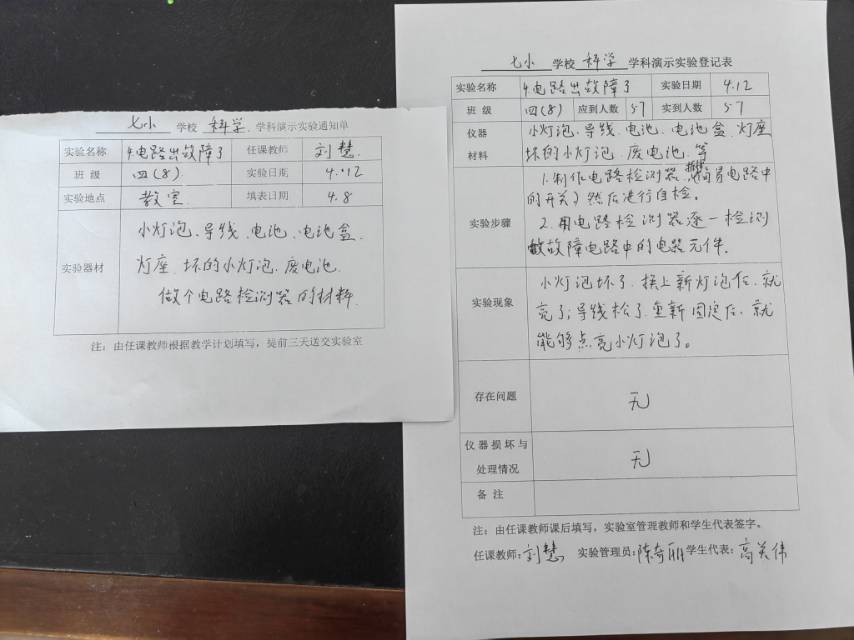 七小 学校 科学 学科演示实验通知单
实验名称 4.电路出故障了 任课教师 刘慧
班级 四(8). 实验日期 4.12
实验地点 教室 填表日期 4.8
实验器材 小灯泡、导线、电池、电池盒、
灯座、坏的小灯泡、废电池、
做个电路检测器的材料
注：由任课教师根据教学计划填写，提前三天送交实验室
七小 学校 科学 学科演示实验登记表
实验名称 4.电路出故障了 实验日期 4.12
班级 四(8) 应到人数 57 实到人数 57
仪器 小灯泡、导线、电池、电池盒、灯座
材料 坏的小灯泡、废电池、等
实验步骤 1.制作电路检测器 简易电路中
的开关）然后进行自检。
2.用电路检测器逐一检测
故障电路中的电器元件。
实验现象 小灯泡坏了，换上新灯泡后，就
亮了；导线松了，重新固定后，就
能够点亮小灯泡了。
存在问题 无
仪器损坏与
处理情况 无
备注
注：由任课教师课后填写，实验室管理教师和学生代表签字。
任课教师：刘慧 实验管理员：陈 丽 学生代表：高 伟